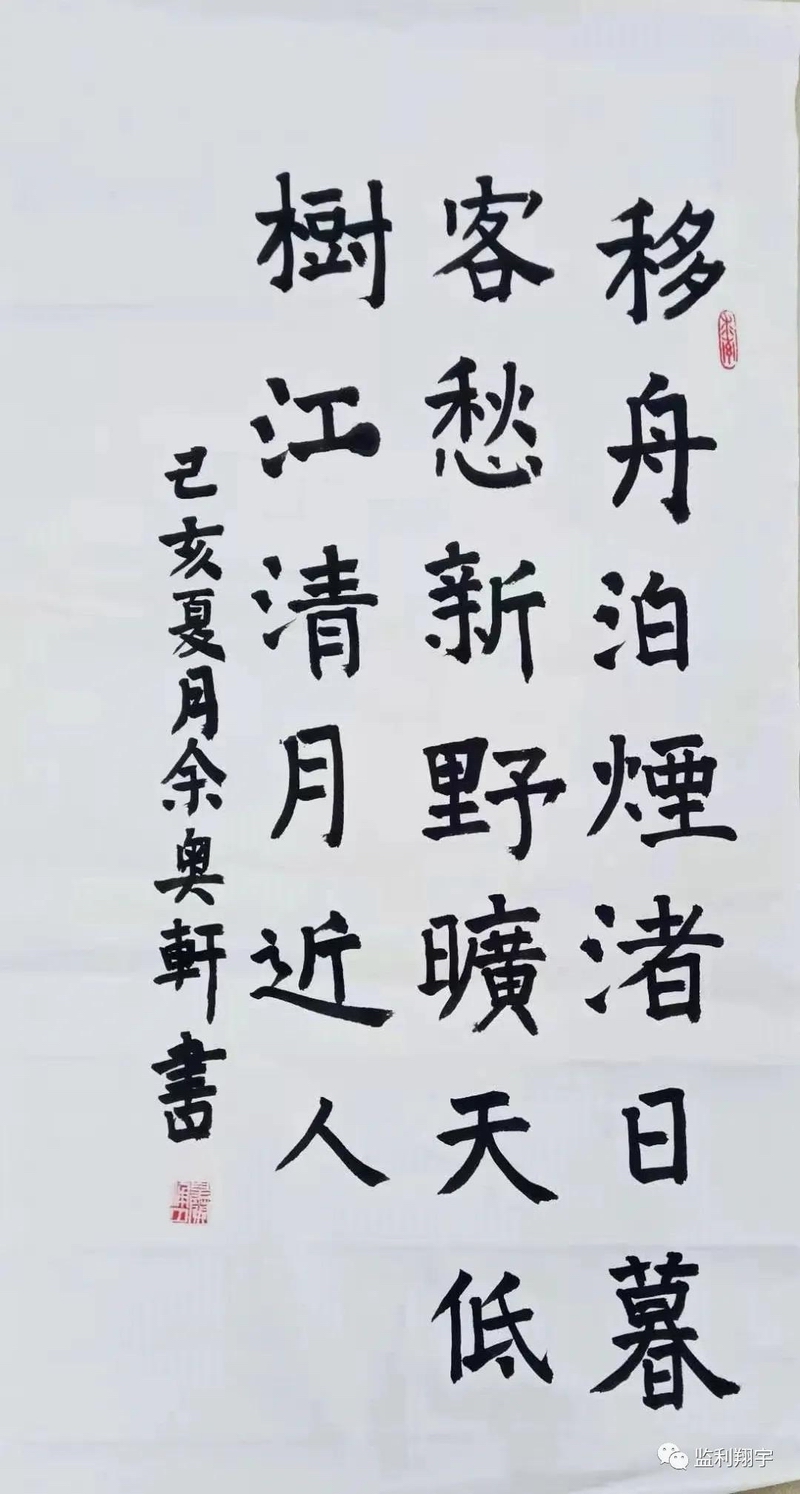 移舟泊煙渚日暮
客愁新野曠天低
樹江清月近人
己亥夏月余奥軒書
监利翔宇